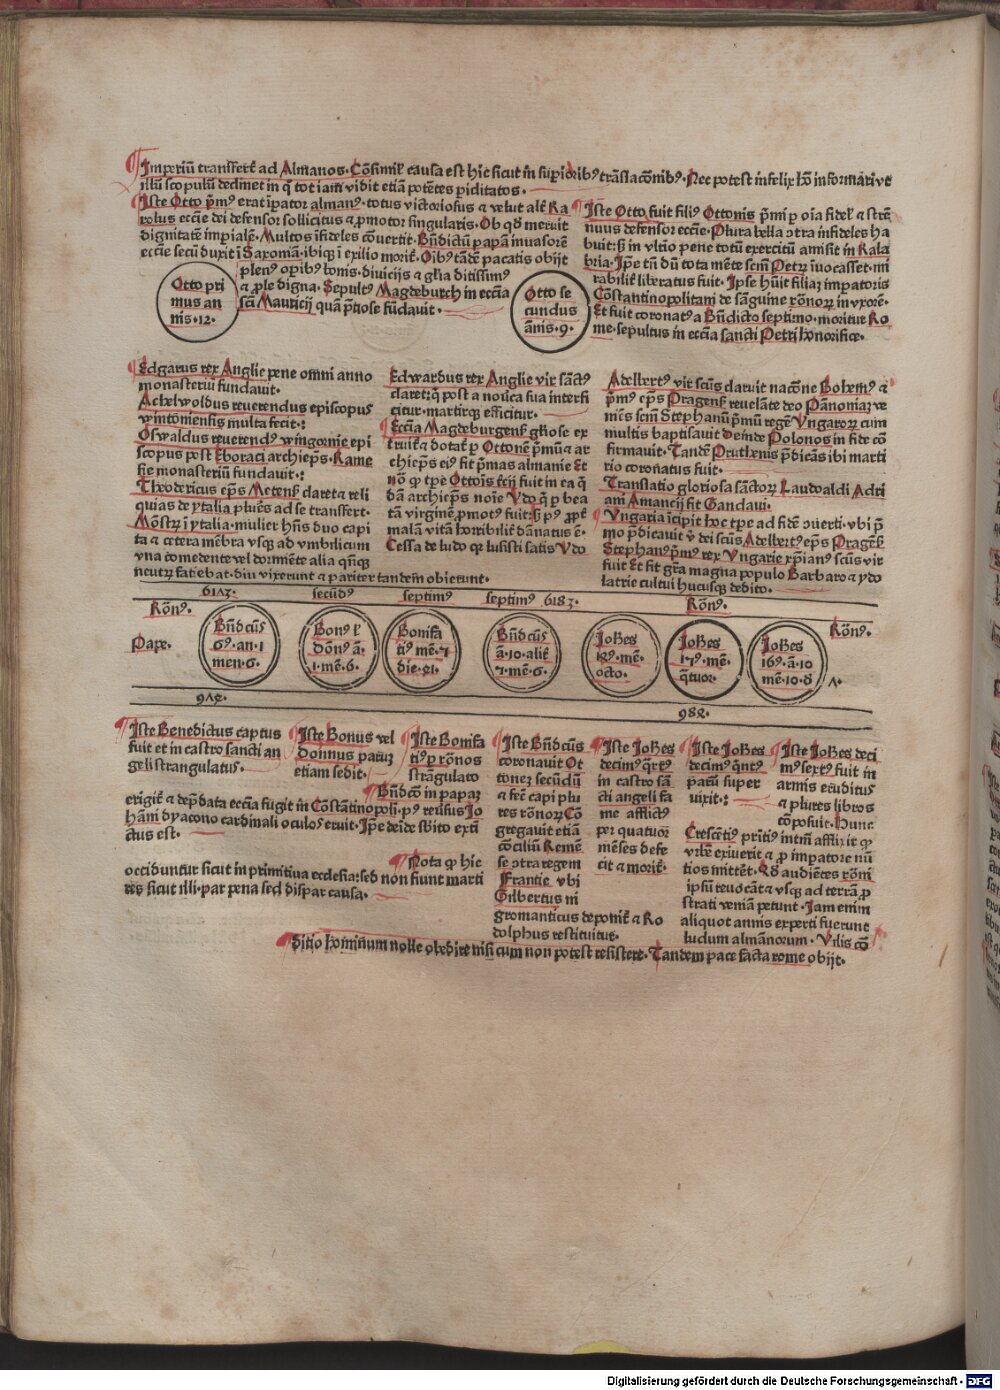 Imperiū transfert᷒ ad Almanos. Cōsimil᷒ causa est hic sicut in superiorib⁹ trāslacōnib⁹. Nec potest infelix hō informari vt
illū scopulū declinet in q̄ tot iam vidit etiā potētes piditatos.
Iste Otto pm̄⁹ erat īpator alman⁹. totus victoriosus ⁊ velut alt᷒ Ka
rolus eccīe dei defensor sollicitus ⁊ ꝓmotor singularis. Ob qd̄ meruit
dignitatē imꝑialē. Multos īfideles cōuertit. Bn̄dictū papā inuasorē
eccīe secū duxit ī Saxoniā. ibiqꝫ ī exilio morit᷒. Oib⁹ tādē pacatis obijt
plen⁹ opib⁹ bonis. diuicijs ⁊ gl̄ia ditissim⁹
⁊ ꝓle digna. Sepult⁹ Magdeburch in eccīa
scī Mauricij quā p̄tiose fūdauit.
Otto pri
mus an
nis. 12.
Iste Otto fuit fili⁹ Ottonis pm̄i ꝑ oīa fidel᷒ ⁊ strē
nuus defensor eccīe. Plura bella ↄtra infideles ha
buit: sꝫ in vltīo pene totū exercitū amisit in Kala
bria. Ip̄e tn̄ dū tota mēte scm̄ Petrꝝ īuocasset. mi
rabilit᷒ liberatus fuit. Ipse hūit filiaꝫ imꝑatoris
Cōstantinopolitani de sanguine rōnoꝝ in vxorē.
Et fuit coronat⁹ a Bn̄dicto septimo. moritur Ro
me. sepultus in eccīa sancti Petri honorifice.
Otto se
cundus
ānis. 9.
Edgarus rex Anglie pene omni anno
monasteriū fundauit.
Achelwoldus reuerendus episcopus
wintoniensis multa fecit.:
Oswaldus reuerend⁹ wingornie epi
scopus post Eboraci archiep̄s. Rame
sie monasteriū fundauit.:
Theodericus ep̄s Metens᷒ claret ⁊ reli
quias de ytalia plures ad se transfert᷒.
Mōstrꝝ ī ytalia. mulier hn̄s duo capi
ta ⁊ cetera mēbra vsqꝫ ad vmbilicum
vna comedente vel dormiēte alia qn̄qꝫ
neutrꝝ fatiebat. diu vixerunt ⁊ pariter tandem obierunt.
Edwardus rex Anglie vir sāct⁹
claret: q̄ post a nouca sua interfi
citur. martirqꝫ efficitur.
Eccīa Magdeburgens᷒ gl̄iose ex
truit᷒ ⁊ dotat᷒ ꝑ Ottonē pm̄ū ⁊ ar
chiep̄s ei⁹ fit pm̄as almanie Et
nō qꝫ tp̄e Ottōis t̄cij fuit in ea q̄
dā archiep̄s noīe Vdo q̄ ꝑ bea
tā virginē ꝓmot⁹ fuit: sꝫ p⁹ ꝓpt᷒
malā vitā horribilit᷒ dānatus ē.
Cessa de ludo qꝛ lusisti satis Vdo
Adelbert⁹ vir scūs claruit nacōne Bohem⁹ ⁊
pm̄⁹ ep̄s Pragens᷒ reuelāte deo Pānoniaꝫ ve
niēs scm̄ Stephanū pm̄ū regē Vngaroꝝ cum
multis baptisauit deinde Polonos in fide cō
firmauit. Tandē Pruthenis p̄dicās ibi marti
rio coronatus fuit.
Translatio gloriosa sāctoꝝ Laudoaldi Adri
ani Amancij fit Gandaui.
Vngaria īcipit hoc tp̄e ad fidē ↄuerti. vbi p̄
mo p̄dicauit v̄ dei scūs Adelbert⁹ ep̄s Pragēs᷒
Stephan⁹ pm̄⁹ rex Vngarie xp̄ian⁹ scūs vir
fuit Et fit gr̄a magna populo Barbaro ⁊ ydo
latrie cultui hucusqꝫ dedito.
secūd⁹ septim⁹ septim⁹ 6183.
Rōn⁹. Rōn⁹.
Rōn⁹.
Pape.
Bn̄dcūs
6⁹. an. 1
men. 6.
Bon⁹ l᷒
dōn⁹ ā.
1. mē. 6.
Bonifa
ti⁹ mē. 7
die. 21.
Bn̄dcūs
ā. 10. alit᷒
7. mē. 6.
Johes
mē.
octo.
Johes
17⁹. mē.
q̄tuor.
Johes
16⁹. ā. 10
mē. 10. d̄
982.
Iste Benedictus captus
fuit et in castro sancti an
geli strangulatus.
Iste Bonus vel
donnus parum
etiam sedit.
Iste Bonifa
ti⁹ ꝑ rōnos
strāgulato
Bn̄dcō in papaꝫ
erigit᷒ ⁊ dep̄data eccīa fugit in Cōstātinopoli. p⁹ reūsus Jo
hāni dyacono cardinali oculos eruit. Ip̄e deīde sbito extī
ctus est.
Nota qꝫ hic
occiduntur sicut in primitiua ecclesia: sed non fiunt marti
res sicut illi. par pena sed dispar causa.
Iste Bn̄dcūs
coronauit Ot
tonez secūdū
⁊ fec᷒ capi plu
res rōnoꝝ Cō
gregauit etiā
cōciliū Remē
se ↄtra regem
Francie vbi
Gilbertus ni
gromanticus deponit᷒ ⁊ Ro
dolphus restituitur.
Iste Johes
decim⁹ qr̄t⁹
in castro sā
cti angeli fa
me afflict⁹
per quatuor
mēses defe
cit ⁊ morit᷒.
Iste Johes
decim⁹ qn̄t⁹
parū super
uixit.:
Iste Johes deci
m⁹ sext⁹ fuit in
armis eruditus
⁊ plures libros
cōposuit. Hunc
Crescēti⁹ affligit
vrbē exiuerit ⁊ ꝓ imperatore nū
tios mitteret. Qd̄ audiētes rōni
ipsū reuocāt ⁊ vsqꝫ ad terrā ꝓ
strati veniā petunt. Jam enim
aliquot annis experti fuerunt
ludum almānorum. Vilis cō
ditio hominum nolle obedire nisi cum non potest resistere. Tandem pace facta rome obijt.
Digitalisierung gefördert durch die Deutsche Forschungsgemeinschaft - DFG